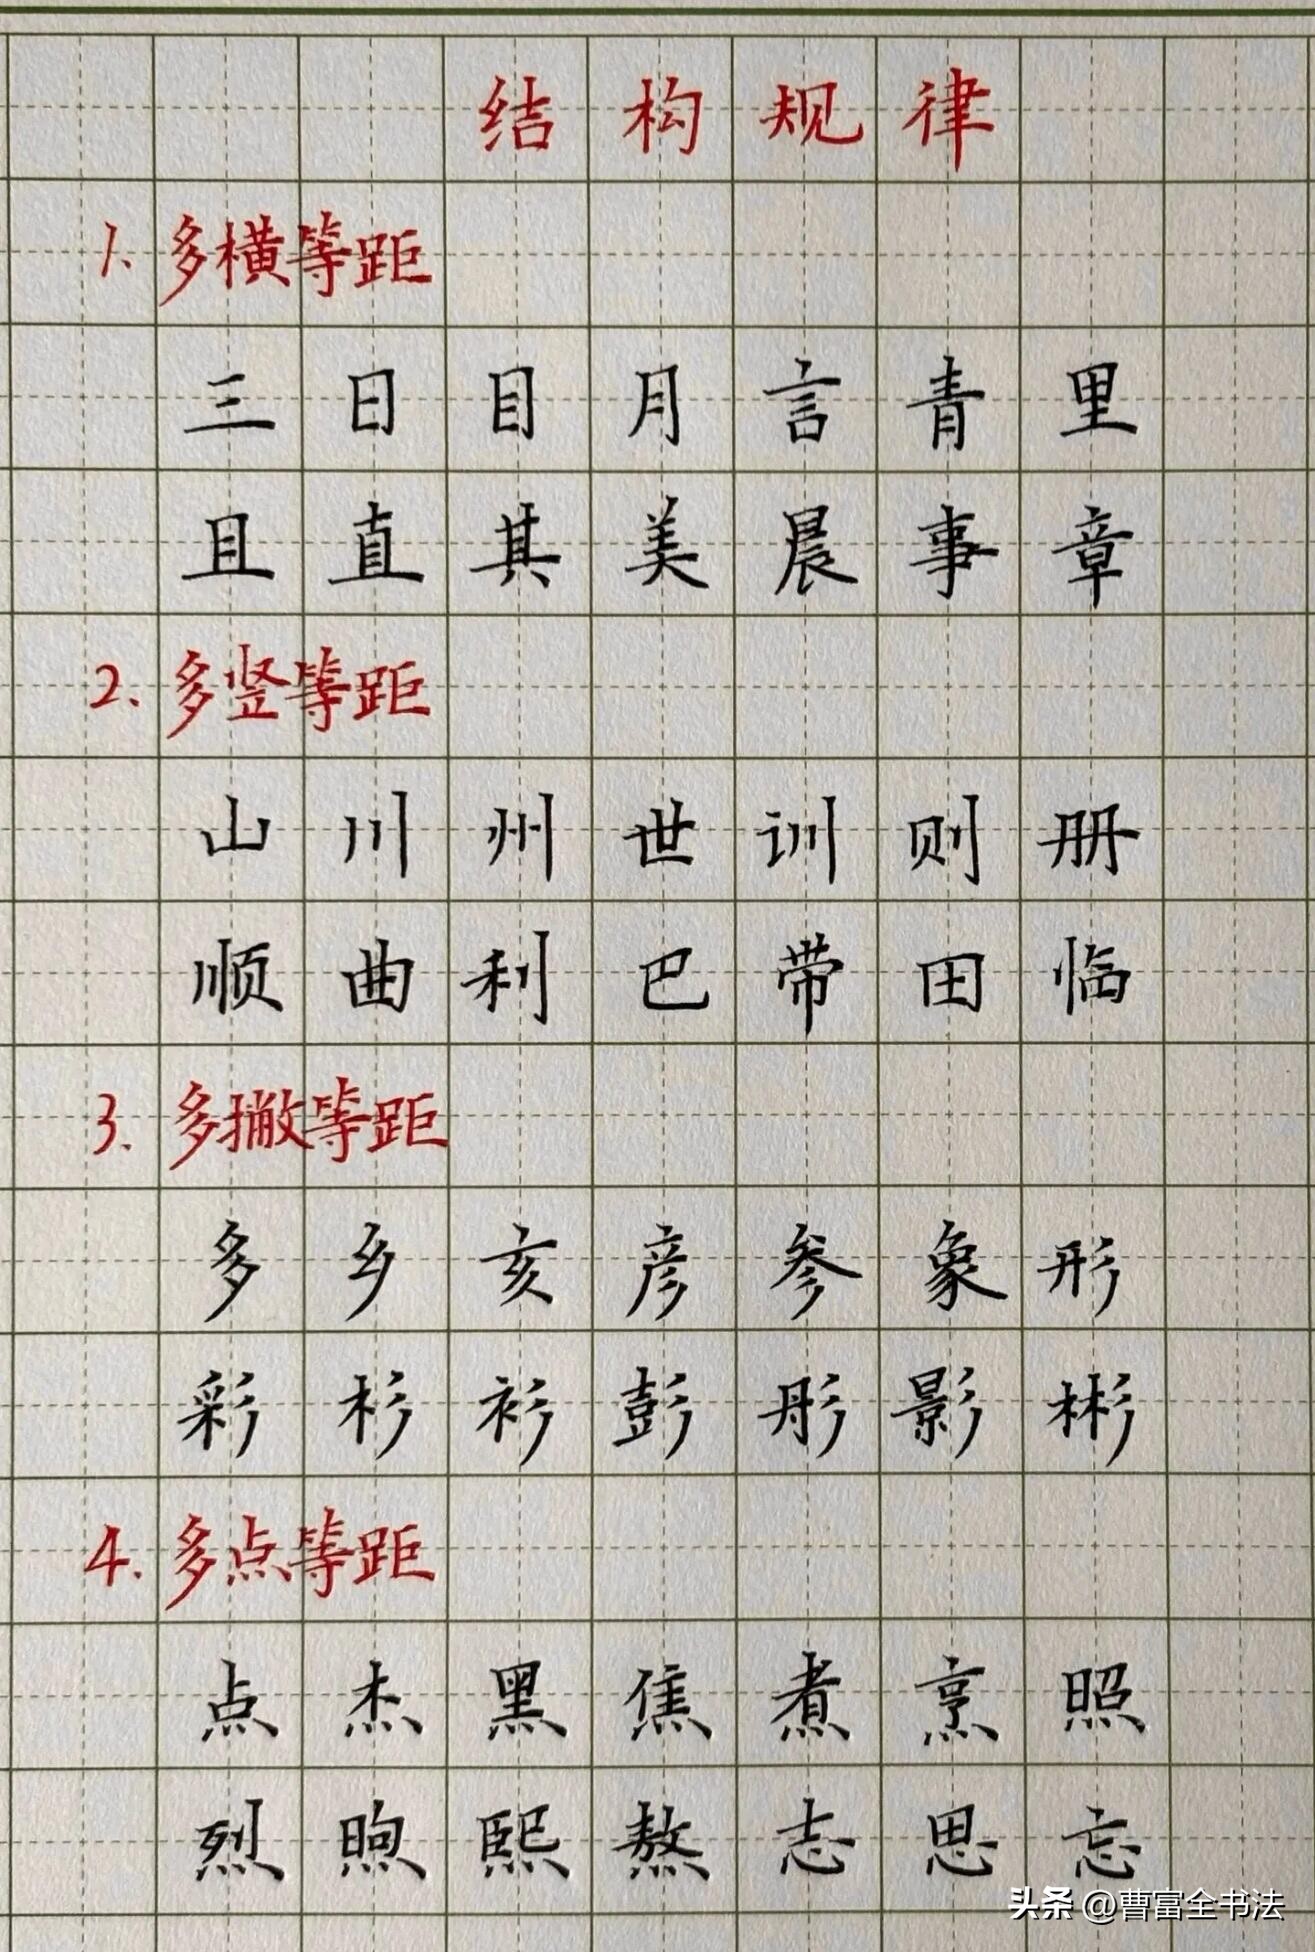 结构规律
1.多横等距
三日目月言青里
且直其美晨事章
2.多竖等距
山川州世训则册
顺曲利巴带田临
3.多撇等距
多乡亥彦参象形
彩杉衫彭彤影彬
4.多点等距
点杰黑焦煮烹照
烈煦熙熬志思忘
头条 @曹富全书法